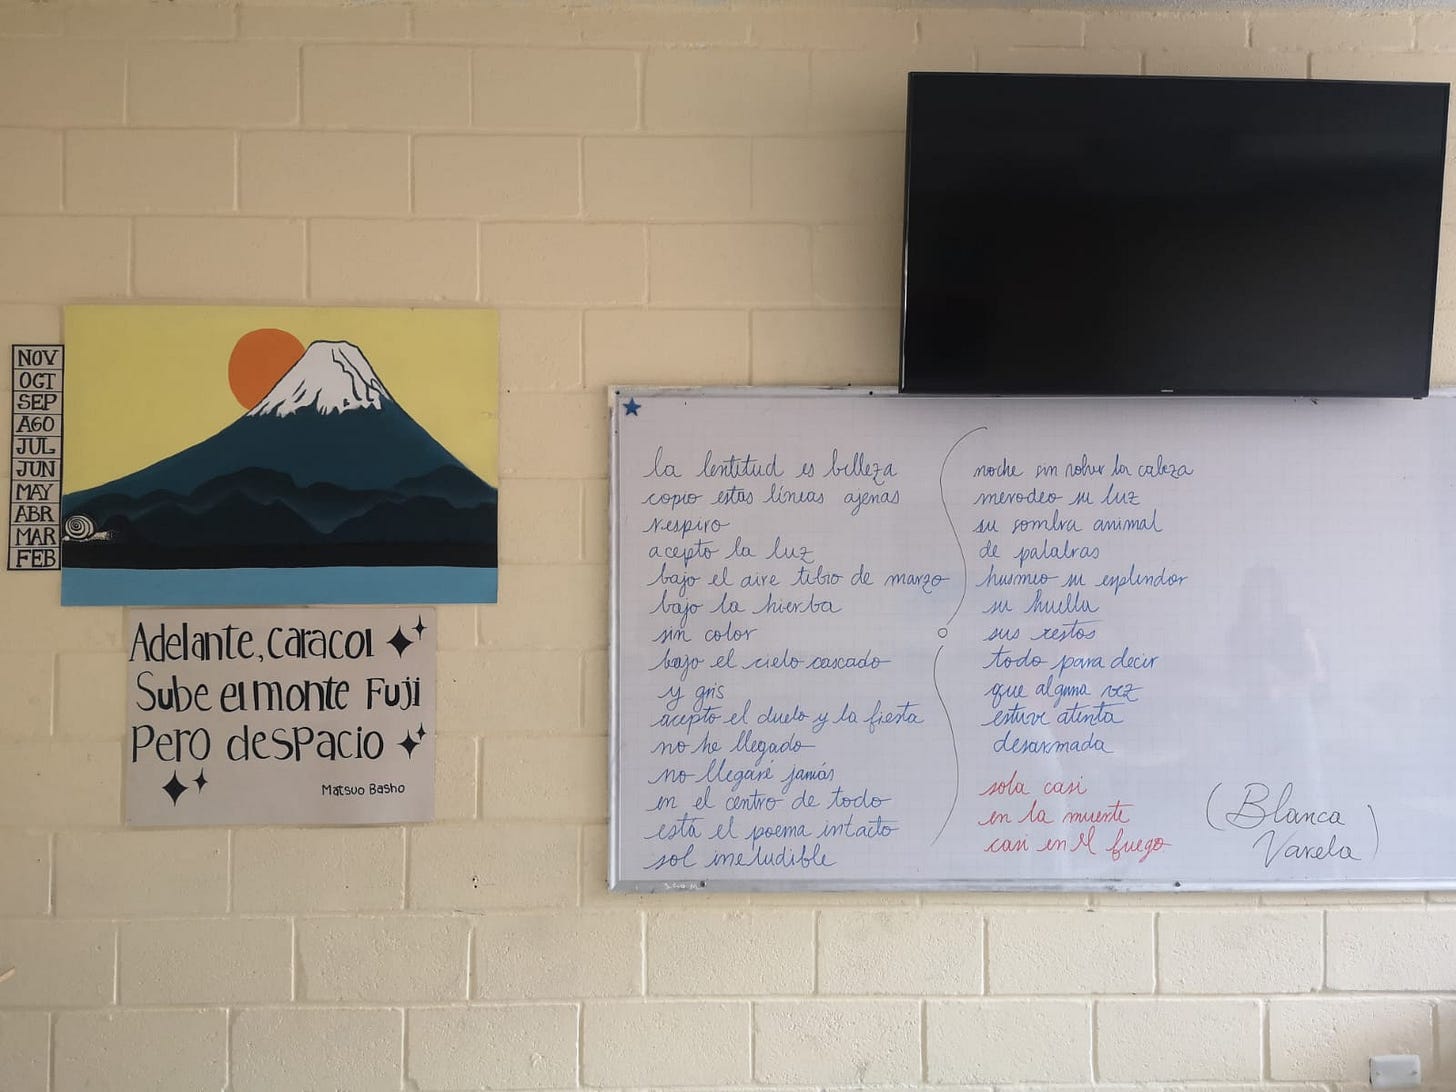 NOV
OCT
SEP
AGO
JUL
JUN
MAY
ABR
MAR
FEB
Adelante, caracol
Sube el monte Fuji
Pero despacio
Matsuo Basho
la lentitud es belleza
copio estas líneas ajenas
respiro
acepto la luz
bajo el aire tibio de marzo
bajo la hierba
sin color
bajo el cielo cascado
y gris
acepto el duelo y la fiesta
no he llegado
no llegaré jamás
en el centro de todo
está el poema intacto
sol ineludible
noche sin volver la cabeza
merodeo su luz
su sombra animal
de palabras
husmeo su esplendor
su huella
sus restos
todo para decir
que alguna vez
estuve atenta
desarmada
sola casi
en la muerte
casi en el fuego
(Blanca
Varela)